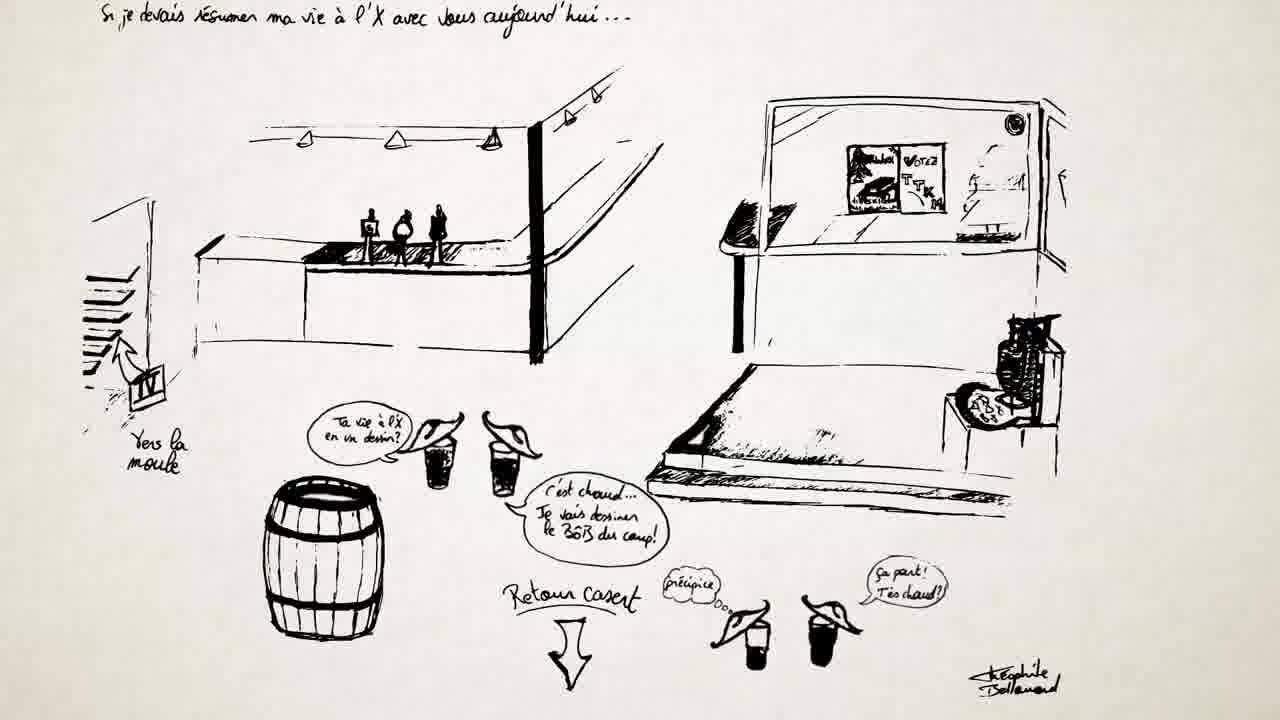 Si je devais résumer ma vie à l'X avec vous aujourd'hui...
VOTEZ
IV
Vers la
moule
Ta vie à l'X
en un dessin?
c'est chaud...
Je vais dessiner
le BôB du coup!
Retour casert
précipice
Ça part!
T'es chaud?
Théophile